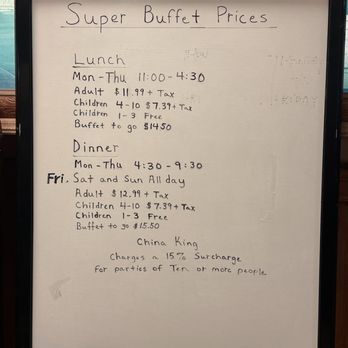 Super Buffet Prices
Lunch
Mon - Thu 11:00 - 4:30
Adult $11.99 + Tax
Children 4-10 $7.39 + Tax
Children 1-3 Free
Buffet to go $14.50
Dinner
Mon - Thu 4:30 - 9:30
Fri. Sat and Sun All day
Adult $12.99 + Tax
Children 4-10 $7.39 + Tax
Children 1-3 Free
Buffet to go $15.50
China King
Charges a 15% Surcharge
For parties of Ten or more people